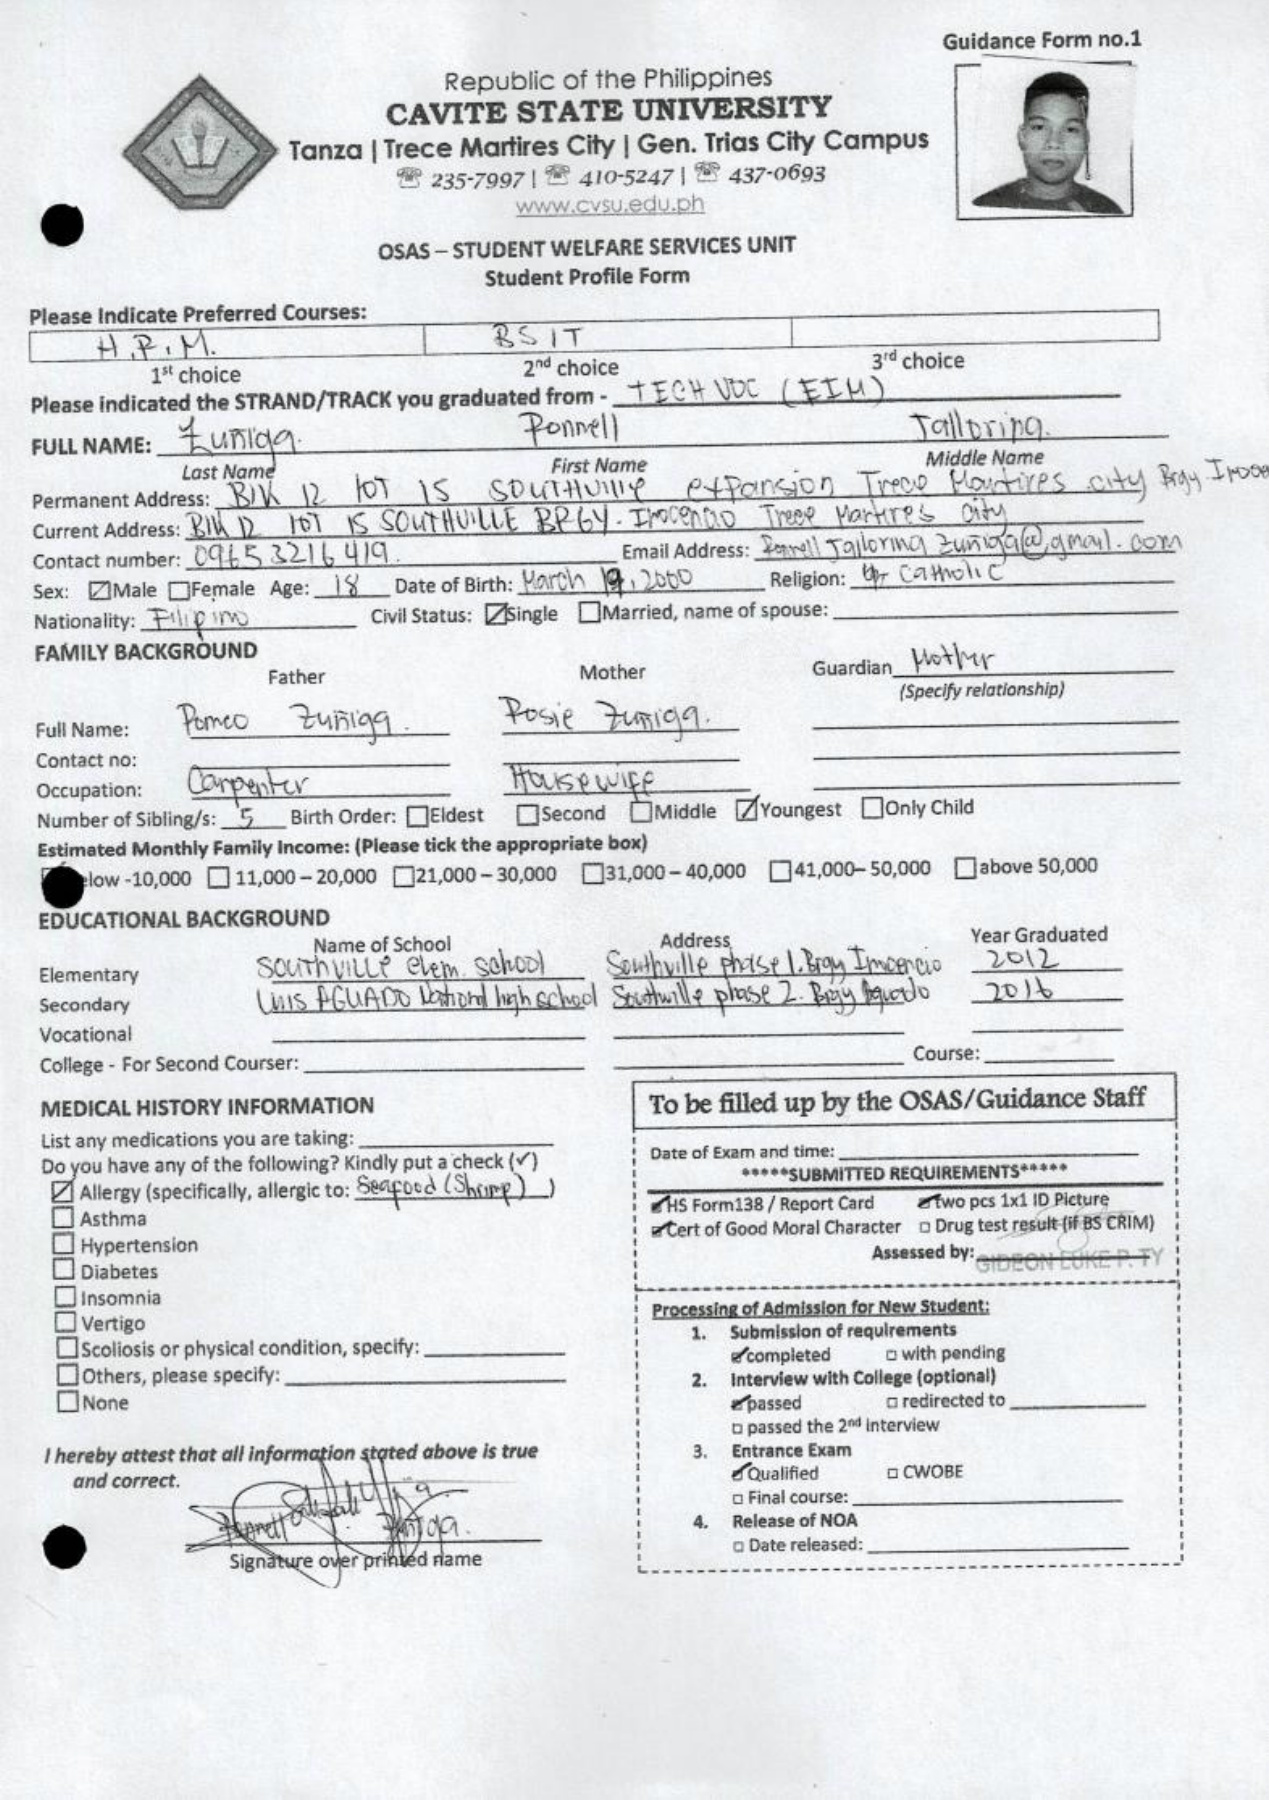 Guidance Form no.1
Republic of the Philippines
CAVITE STATE UNIVERSITY
Tanza | Trece Martires City | Gen. Trias City Campus
☏ 235-7997 | ☏ 410-5247 | ☏ 437-0693
www.cvsu.edu.ph
OSAS – STUDENT WELFARE SERVICES UNIT
Student Profile Form
Please Indicate Preferred Courses:
H.R.M. BSIT
1st choice 2nd choice 3rd choice
Please indicated the STRAND/TRACK you graduated from - TECH VOC (EIM)
FULL NAME: Zuñiga. Ronnell Talloring.
Last Name First Name Middle Name
Permanent Address: Blk 12 lOT 15 SOUTHVIllE expansion Trece Martires city Brgy
Current Address: Blk 12 lOT 15 SOUTHVILLE BRGY. Inocencio Trece Martires city
Contact number: 09653216419. Email Address: Ronnell Talloring Zuñiga@gmail.com
Sex: ☑Male ☐Female Age: 18 Date of Birth: March 19, 2000 Religion: Catholic
Nationality: Filipino Civil Status: ☑Single ☐Married, name of spouse:
FAMILY BACKGROUND
Father Mother Guardian Mother
(Specify relationship)
Full Name: Romeo Zuñiga. Rosie Zuñiga.
Contact no:
Occupation: Carpenter Housewife
Number of Sibling/s: 5 Birth Order: ☐Eldest ☐Second ☐Middle ☑Youngest ☐Only Child
Estimated Monthly Family Income: (Please tick the appropriate box)
elow -10,000 ☐ 11,000 – 20,000 ☐21,000 – 30,000 ☐31,000 – 40,000 ☐41,000– 50,000 ☐above 50,000
EDUCATIONAL BACKGROUND
Name of School Address Year Graduated
Elementary SOUTHVILLE elem. school Southville phase 1. Brgy Inocencio 2012
Secondary LUIS AGUADO National high school Southville phase 2. Brgy Aguado 2016
Vocational
College - For Second Courser: Course:
MEDICAL HISTORY INFORMATION
List any medications you are taking:
Do you have any of the following? Kindly put a check (✓)
☑ Allergy (specifically, allergic to: Seafood (Shrimp) )
☐ Asthma
☐ Hypertension
☐ Diabetes
☐ Insomnia
☐ Vertigo
☐ Scoliosis or physical condition, specify:
☐ Others, please specify:
☐ None
I hereby attest that all information stated above is true
and correct.
Ronnell Zuñiga.
Signature over printed name
To be filled up by the OSAS/Guidance Staff
Date of Exam and time:
*****SUBMITTED REQUIREMENTS*****
☑HS Form138 / Report Card ☑Two pcs 1x1 ID Picture
☑Cert of Good Moral Character ☐ Drug test result (if BS CRIM)
Assessed by: GIDEON LUKE P. TY
Processing of Admission for New Student:
1. Submission of requirements
☑completed ☐ with pending
2. Interview with College (optional)
☑passed ☐ redirected to
☐ passed the 2nd Interview
3. Entrance Exam
☑Qualified ☐ CWOBE
☐ Final course:
4. Release of NOA
☐ Date released: